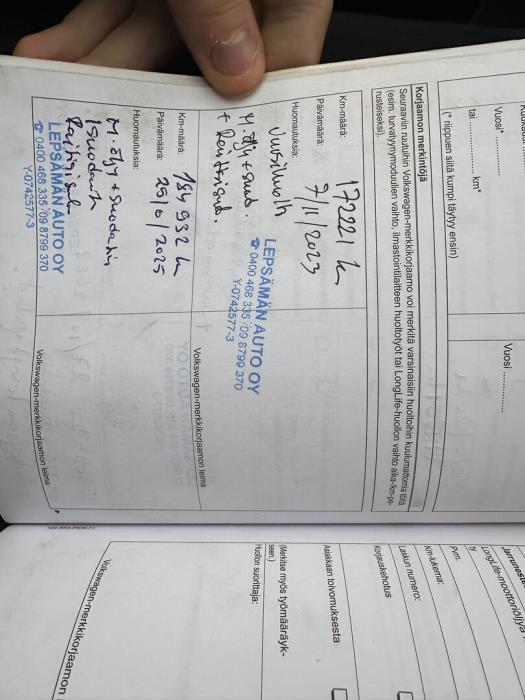 Vuosi* ..............
tai .............. km*
(* riippuen siitä kumpi täytyy ensin)
Vuosi ..............
Korjaamon merkintöjä
Seuraaviin ruutuihin Volkswagen-merkkikorjaamo voi merkitä varsinaisiin huoltoihin kuulumattomia töitä
(esim. turvatyynymoduulien vaihto, ilmastointilaitteen huoltotyöt tai LongLife-huollon vaihto aika-/km-pe-
rusteiseksi).
Km-määrä: 172221 km
Päivämäärä: 7/11/2023
Huomautuksia:
M. öljy + suod.
+ Raitisuod.
LEPSÄMÄN AUTO OY
☎ 0400 468 335 / 09 8799 370
Y-0742577-3
Volkswagen-merkkikorjaamon leima
Km-määrä: 184 932 km
Päivämäärä: 25/6/2025
Huomautuksia:
M. öljy + suodatin
LEPSÄMÄN AUTO OY
☎ 0400 468 335 / 09 8799 370
Y-0742577-3
Volkswagen-merkkikorjaamon leima
LongLife-moottoriöljyä
Pvm:
Km-lukema:
Laskun numero:
Korjauskehotus
Asiakkaan toivomuksesta
(Merkitse myös työmääräyk-
seen.)
Huollon suorittaja:
Volkswagen-merkkikorjaamon